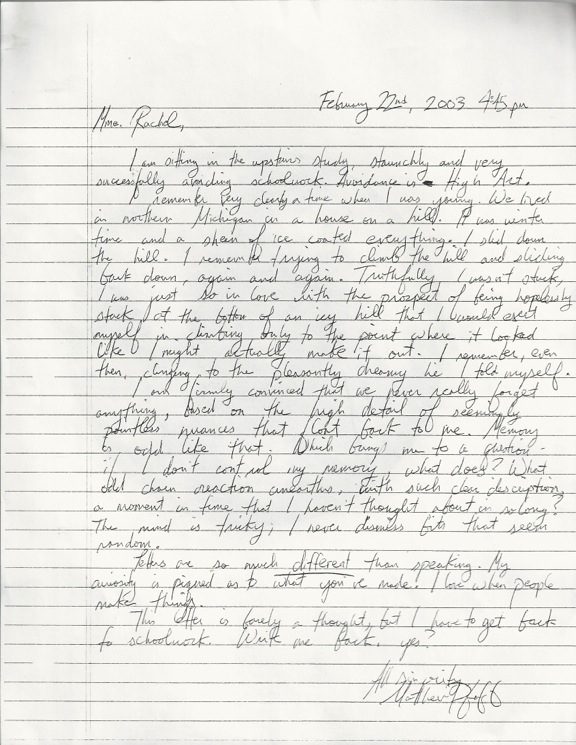 February 22nd, 2003 4:45pm
Mme. Rachel,
I am sitting in the upstairs study, staunchly and very
successfully avoiding schoolwork. Avoidance is High Art.
I remember very clearly a time when I was young. We lived
in northern Michigan in a house on a hill. It was winter
time and a sheen of ice coated everything. I slid down
the hill. I remember trying to climb the hill and sliding
back down, again and again. Truthfully I wasn't stuck,
I was just so in love with the prospect of being hopelessly
stuck at the bottom of an icy hill that I would exert
myself in climbing only to the point where it looked
like I might actually make it out. I remember, even
then, clinging to the pleasantly dreamy lie I told myself.
I am firmly convinced that we never really forget
anything, based on the high detail of seemingly
pointless nuances that float back to me. Memory
is odd like that. Which brings me to a question -
if I don't control my memory, what does? What
odd chain reaction unearths, with such clear description,
a moment in time that I haven't thought about in so long?
The mind is tricky; I never dismiss bits that seem
random.
Letters are so much different than speaking. My
curiosity is piqued as to what you've made. I love when people
make things.
This letter is barely a thought, but I have to get back
to schoolwork. Write me back, yes?
All sincerity,
Matthew